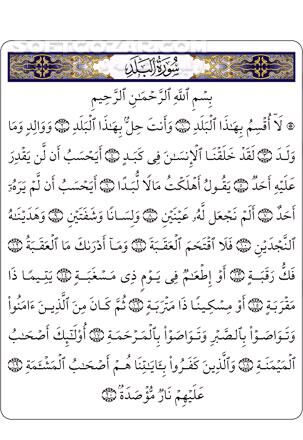 SOFTGOZAR.COM
سُورَةُ البَلَدِ
بِسْمِ اللَّهِ الرَّحْمَٰنِ الرَّحِيمِ
لَآ أُقْسِمُ بِهَٰذَا ٱلْبَلَدِ ۝ وَأَنتَ حِلٌّۢ بِهَٰذَا ٱلْبَلَدِ ۝ وَوَالِدٍ وَمَا
وَلَدَ ۝ لَقَدْ خَلَقْنَا ٱلْإِنسَٰنَ فِى كَبَدٍ ۝ أَيَحْسَبُ أَن لَّن يَقْدِرَ
عَلَيْهِ أَحَدٌ ۝ يَقُولُ أَهْلَكْتُ مَالًا لُّبَدًا ۝ أَيَحْسَبُ أَن لَّمْ يَرَهُۥٓ
أَحَدٌ ۝ أَلَمْ نَجْعَل لَّهُۥ عَيْنَيْنِ ۝ وَلِسَانًا وَشَفَتَيْنِ ۝ وَهَدَيْنَٰهُ
ٱلنَّجْدَيْنِ ۝ فَلَا ٱقْتَحَمَ ٱلْعَقَبَةَ ۝ وَمَآ أَدْرَىٰكَ مَا ٱلْعَقَبَةُ ۝
فَكُّ رَقَبَةٍ ۝ أَوْ إِطْعَٰمٌ فِى يَوْمٍ ذِى مَسْغَبَةٍ ۝ يَتِيمًا ذَا
مَقْرَبَةٍ ۝ أَوْ مِسْكِينًا ذَا مَتْرَبَةٍ ۝ ثُمَّ كَانَ مِنَ ٱلَّذِينَ ءَامَنُوا۟
وَتَوَاصَوْا۟ بِٱلصَّبْرِ وَتَوَاصَوْا۟ بِٱلْمَرْحَمَةِ ۝ أُو۟لَٰٓئِكَ أَصْحَٰبُ
ٱلْمَيْمَنَةِ ۝ وَٱلَّذِينَ كَفَرُوا۟ بِـَٔايَٰتِنَا هُمْ أَصْحَٰبُ ٱلْمَشْـَٔمَةِ ۝
عَلَيْهِمْ نَارٌ مُّؤْصَدَةٌۢ ۝